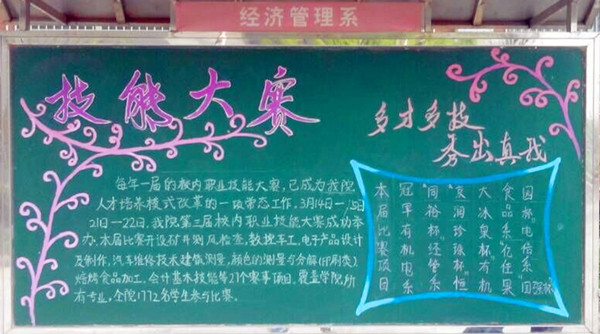 经济管理系
技能大赛
多才多技
秀出真我
每年一届的校内职业技能大赛，已成为我院
人才培养模式改革的一项常态工作。3月14日一15日
21日一22日，我院第三届校内职业技能大赛成功举
办。本届比赛开设矿井测风检查，数控车工，电子产品设计
及制作，汽车维修技术建筑测量，颜色的测量与分解(印刷类)
焙烤食品加工，会计基本技能等27个赛事项目，覆盖学院所
有专业，全院1772名学生参与比赛。
本届比赛项目
冠军有机电系
大冰泉杯"有机